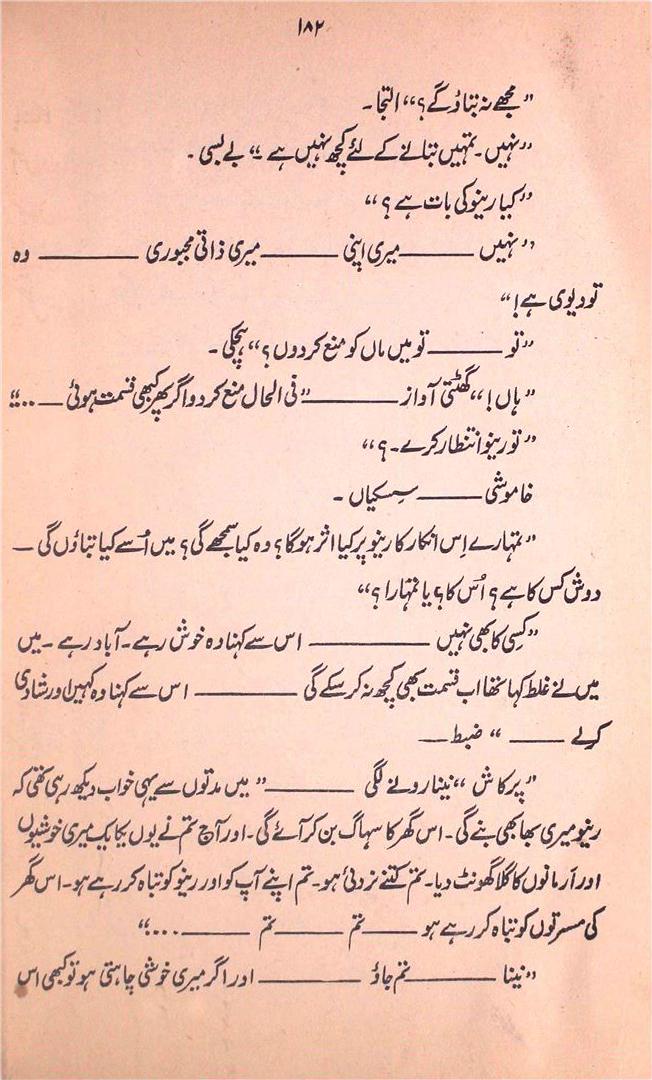 ۱۸۲
”مجھے نہ بتاؤ گے؟“ التجا۔
”نہیں۔ تمہیں بتانے کے لئے کچھ نہیں ہے۔“ بے بسی۔
”کیا رینو کی بات ہے؟“
”نہیں ——— میری اپنی ——— میری ذاتی مجبوری ——— وہ
تو دیوی ہے!“
”تو ——— تو میں ماں کو منع کر دوں؟“ ہچکی۔
”ہاں!“ گھٹتی آواز ——— ”فی الحال منع کر دو اگر پھر کبھی قسمت ہوئی — ....“
”تو رینو انتظار کرے۔؟“
خاموشی ——— سسکیاں۔
”تمہارے اِس انکار کا رینو پر کیا اثر ہوگا؟ وہ کیا سمجھے گی؟ میں اُسے کیا بتاؤں گی —
دوش کس کا ہے؟ اُس کا؟ یا تمہارا؟“
”کسی کا بھی نہیں ——— اس سے کہنا وہ خوش رہے۔ آباد رہے۔ میں
میں نے غلط کہا تھا اب قسمت بھی کچھ نہ کر سکے گی ——— اس سے کہنا وہ کہیں اور شادی
کر لے ——— “ ضبط —
”پرکاش“ نینا رونے لگی ——— ”میں مدتوں سے یہی خواب دیکھ رہی تھی کہ
رینو میری بھابھی بنے گی۔ اس گھر کا سہاگ بن کر آئے گی۔ اور آج تم نے یوں یکایک میری خوشیوں
اور اَرمانوں کا گلا گھونٹ دیا۔ تم کتنے نردئی ہو۔ تم اپنے آپ کو اور رینو کو تباہ کر رہے ہو۔ اس گھر
کی مسرتوں کو تباہ کر رہے ہو ——— تم ——— تم ——— ....“
”نینا ——— تم جاؤ ——— اور اگر میری خوشی چاہتی ہو تو کبھی اس